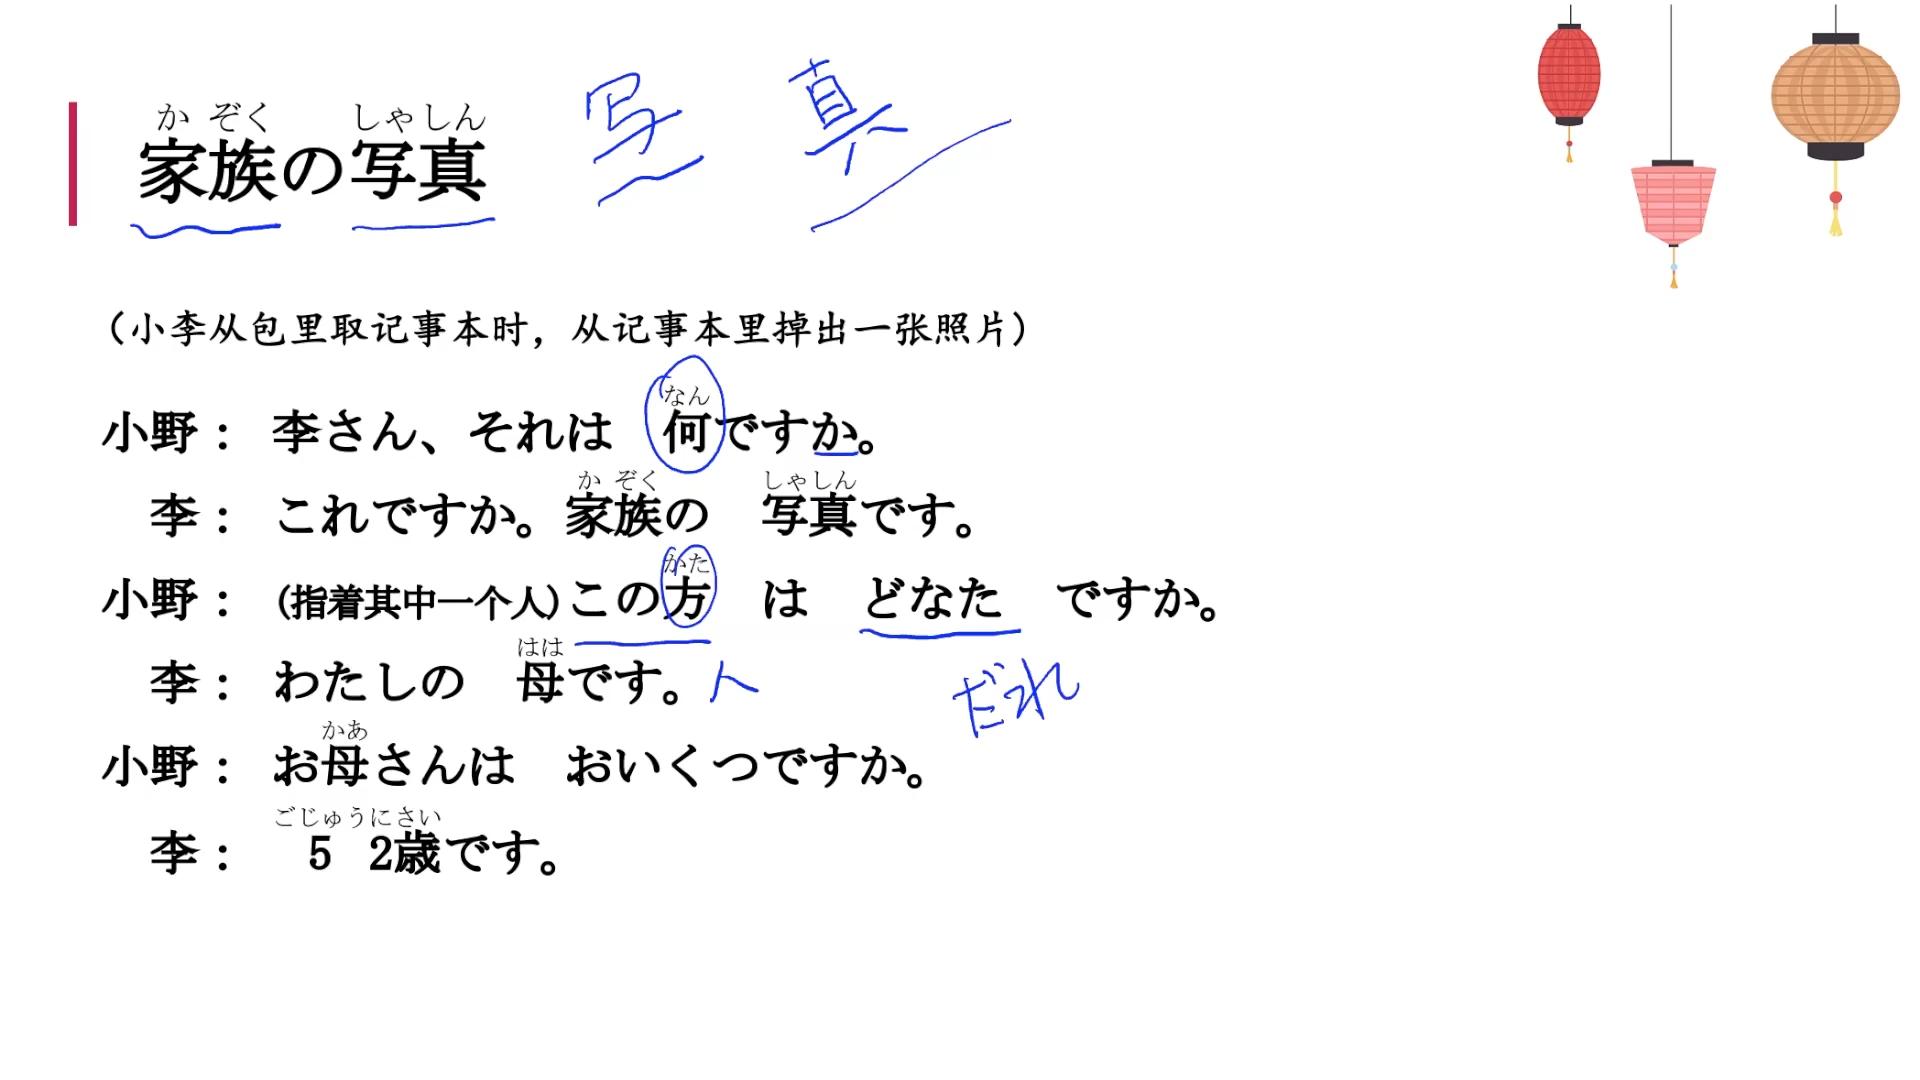 か ぞく しゃしん
家族の写真 写 真
（小李从包里取记事本时，从记事本里掉出一张照片）
なん
小野： 李さん、それは 何ですか。
か ぞく しゃしん
李： これですか。家族の 写真です。
かた
小野： (指着其中一个人)この方 は どなた ですか。
はは
李： わたしの 母です。 人 だれ
かあ
小野： お母さんは おいくつですか。
ごじゅうにさい
李： 5 2歳です。